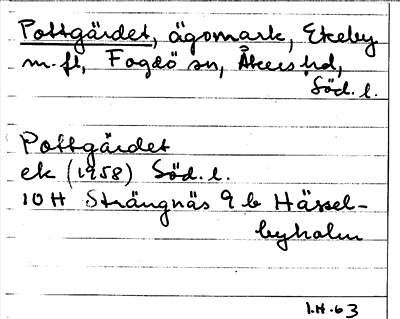 Pottgärdet, ägomark, Ekeby
m.fl, Fogdö sn, Åkers hd,
Söd. l.
Pottgärdet
ek (1958) Söd. l.
10H Strängnäs 9b Hässel-
byholm
I.H.63